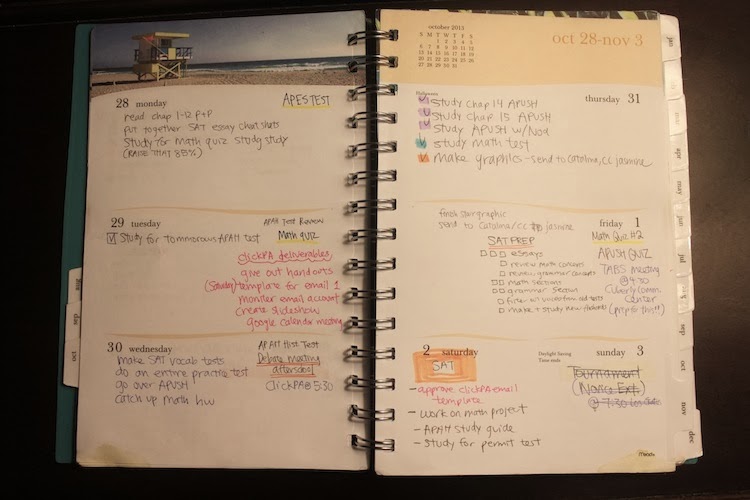 28 monday
APES TEST
read chap 1-12 P+P
put together SAT essay cheat sheets
Study for math quiz study study
(RAISE THAT 88%)
29 tuesday
APAH Test Review
Math quiz
Study for tommorows APAH test
clickPA deliverables
give out handouts
(Saturday) template for email 1
moniter email account
create slideshow
google calendar meeting
30 wednesday
APAH Hist Test
make SAT vocab tests
Debate meeting
do an entire practice test
afterschool
go over APUSH
ClickPA @ 5:30
catch up math hw
october 2013
S M T W T F S
1 2 3 4 5
6 7 8 9 10 11 12
13 14 15 16 17 18 19
20 21 22 23 24 25 26
27 28 29 30 31
oct 28-nov 3
Halloween
thursday 31
Study chap 14 APUSH
Study chap 15 APUSH
Study APUSH w/Noa
study math test
make graphics - send to Catalina, cc jasmine
finish graphic
send to Catalina/cc jasmine
friday 1
SAT PREP
Math Quiz #2
essays
APUSH QUIZ
review math concepts
TABS meeting
review grammar concepts
@ 4:30
math sections
Cuberly Comm.
grammar section
Center
(prep for this!!)
make + study new
2 saturday
SAT
approve clickPA email
template
- work on math project
- APAH study guide
- study for permit test
Daylight Saving
Time ends
sunday 3
Tournament
(Novice Ext.)
@ 7:30
jan
apr
may
jun
jul
sep
oct
nov
dec